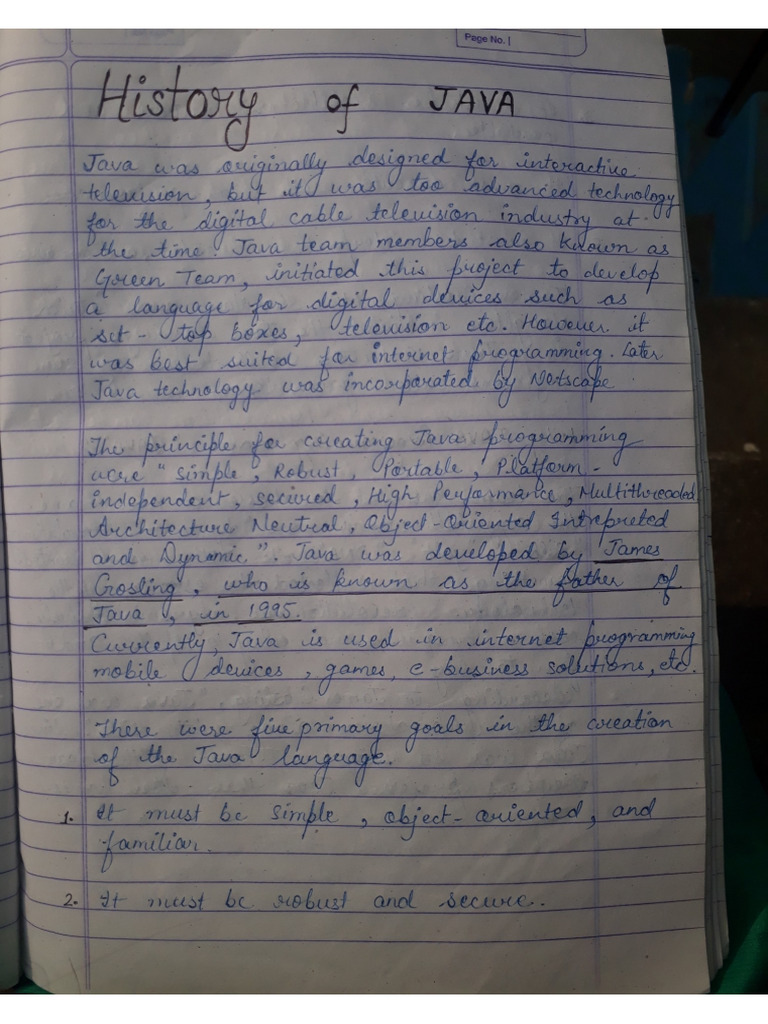 Page No. |
History of JAVA
Java was originally designed for interactive
television, but it was too advanced technology
for the digital cable television industry at
the time. Java team members also known as
Green Team, initiated this project to develop
a language for digital devices such as
set-top boxes, television etc. However it
was best suited for internet programming. Later
Java technology was incorporated by Netscape.
The principle for creating Java programming
were "Simple, Robust, Portable, Platform-
independent, secured, High Performance, Multithreaded
Architecture Neutral, Object-Oriented Intrepreted
and Dynamic". Java was developed by James
Gosling, who is known as the father of
Java, in 1995.
Currently, Java is used in internet programming
mobile devices, games, e-business solutions, etc.
There were five primary goals in the creation
of the Java language.
1. It must be simple, object-oriented, and
familiar.
2. It must be robust and secure.